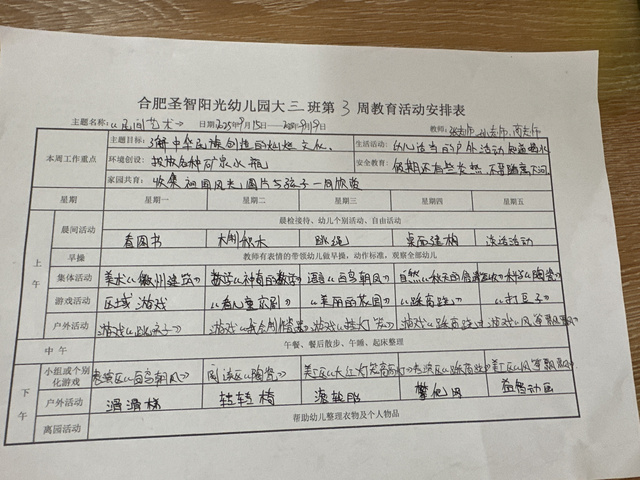 合肥圣智阳光幼儿园大三班第3周教育活动安排表
主题名称:《民间艺术》 日期2025年9月15日—2025年9月19日 教师:
本周工作重点 主题目标:了解中华民族创造的灿烂文化、 生活活动:幼儿适当的户外活动 知道喝水
环境创设:投放各种矿泉水瓶 安全教育:
家园共育:收集祖国风光图片与孩子一同欣赏
星期 星期一 星期二 星期三 星期四 星期五
上午 晨间活动 晨检接待、幼儿个别活动、自由活动
看图书 大型积木 跳绳 桌面建构
早操 教师有表情的带领幼儿做早操,动作标准,观察全部幼儿
集体活动 美术《徽州建筑》 数学《神奇的数字》 语言《百鸟朝凤》 《陶瓷》
游戏活动 区域游戏 《看儿童京剧》 《美丽的花园》 《踩高跷》 《打豆子》
户外活动 游戏《跳房子》 游戏 游戏《挂灯笼》 游戏《踩高跷》 游戏《风筝飘飘》
中午 午餐、餐后散步、午睡、起床整理
下午 小组或个别化游戏 表演区《百鸟朝凤》 《陶瓷》 美工区《大红灯笼高高挂》 表演区《踩高跷》 美工区《风筝飘飘》
户外活动 滑滑梯 转转椅 滚轮胎 攀爬网 益智动画
离园活动 帮助幼儿整理衣物及个人物品